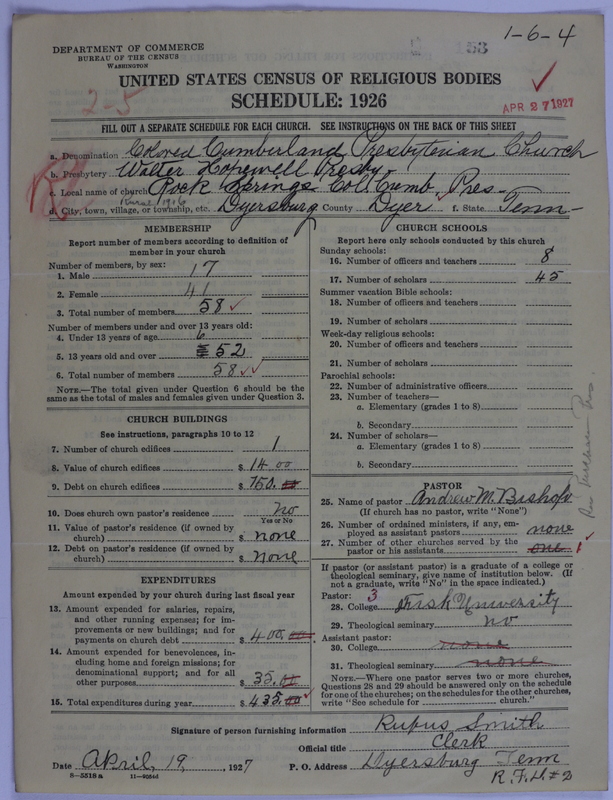 1-6-4
153
DEPARTMENT OF COMMERCE
BUREAU OF THE CENSUS
WASHINGTON
UNITED STATES CENSUS OF RELIGIOUS BODIES
SCHEDULE: 1926
2-5
APR 27 1927
FILL OUT A SEPARATE SCHEDULE FOR EACH CHURCH. SEE INSTRUCTIONS ON THE BACK OF THIS SHEET
a. Denomination Colored Cumberland Presbyterian Church
b. Presbytery Walter Hopewell Presby.
c. Local name of church Rock Springs Col. Cumb. Pres-
Rural 1916
d. City, town, village, or township, etc. Dyersburg County Dyer f. State Tenn-
MEMBERSHIP
Report number of members according to definition of
member in your church
Number of members, by sex:
1. Male 17
2. Female 41
3. Total number of members 58
Number of members under and over 13 years old:
4. Under 13 years of age 6
5. 13 years old and over 52
6. Total number of members 58
NOTE.—The total given under Question 6 should be the
same as the total of males and females given under Question 3.
CHURCH BUILDINGS
See instructions, paragraphs 10 to 12
7. Number of church edifices 1
8. Value of church edifices $ 14 00
9. Debt on church edifices $ 150.00
10. Does church own pastor's residence no
Yes or No
11. Value of pastor's residence (if owned by
church) $ none
12. Debt on pastor's residence (if owned by
church) $ none
EXPENDITURES
Amount expended by your church during last fiscal year
13. Amount expended for salaries, repairs,
and other running expenses; for im-
provements or new buildings; and for
payments on church debt $ 400.00
14. Amount expended for benevolences, in-
cluding home and foreign missions; for
denominational support; and for all
other purposes $ 35.00
15. Total expenditures during year $ 435.00
CHURCH SCHOOLS
Report here only schools conducted by this church
Sunday schools:
16. Number of officers and teachers 8
17. Number of scholars 45
Summer vacation Bible schools:
18. Number of officers and teachers
19. Number of scholars
Week-day religious schools:
20. Number of officers and teachers
21. Number of scholars
Parochial schools:
22. Number of administrative officers
23. Number of teachers—
a. Elementary (grades 1 to 8)
b. Secondary
24. Number of scholars—
a. Elementary (grades 1 to 8)
b. Secondary
PASTOR
25. Name of pastor Andrew M. Bishop
(If church has no pastor, write "None")
26. Number of ordained ministers, if any, em-
ployed as assistant pastors none
27. Number of other churches served by the
pastor or his assistants one 1
If pastor (or assistant pastor) is a graduate of a college or
theological seminary, give name of institution below. (If
not a graduate, write "No" in the space indicated.)
Pastor: 3
28. College Fisk University
29. Theological seminary no
Assistant pastor:
30. College none
31. Theological seminary none
NOTE.—Where one pastor serves two or more churches,
Questions 28 and 29 should be answered only on the schedule
for one of the churches; on the schedules for the other churches,
write "See schedule for church."
Signature of person furnishing information Rufus Smith
Official title Clerk
Date April, 19, 1927 P. O. Address Dyersburg Tenn
R.F.D #2
8—5518 a 11—9054d